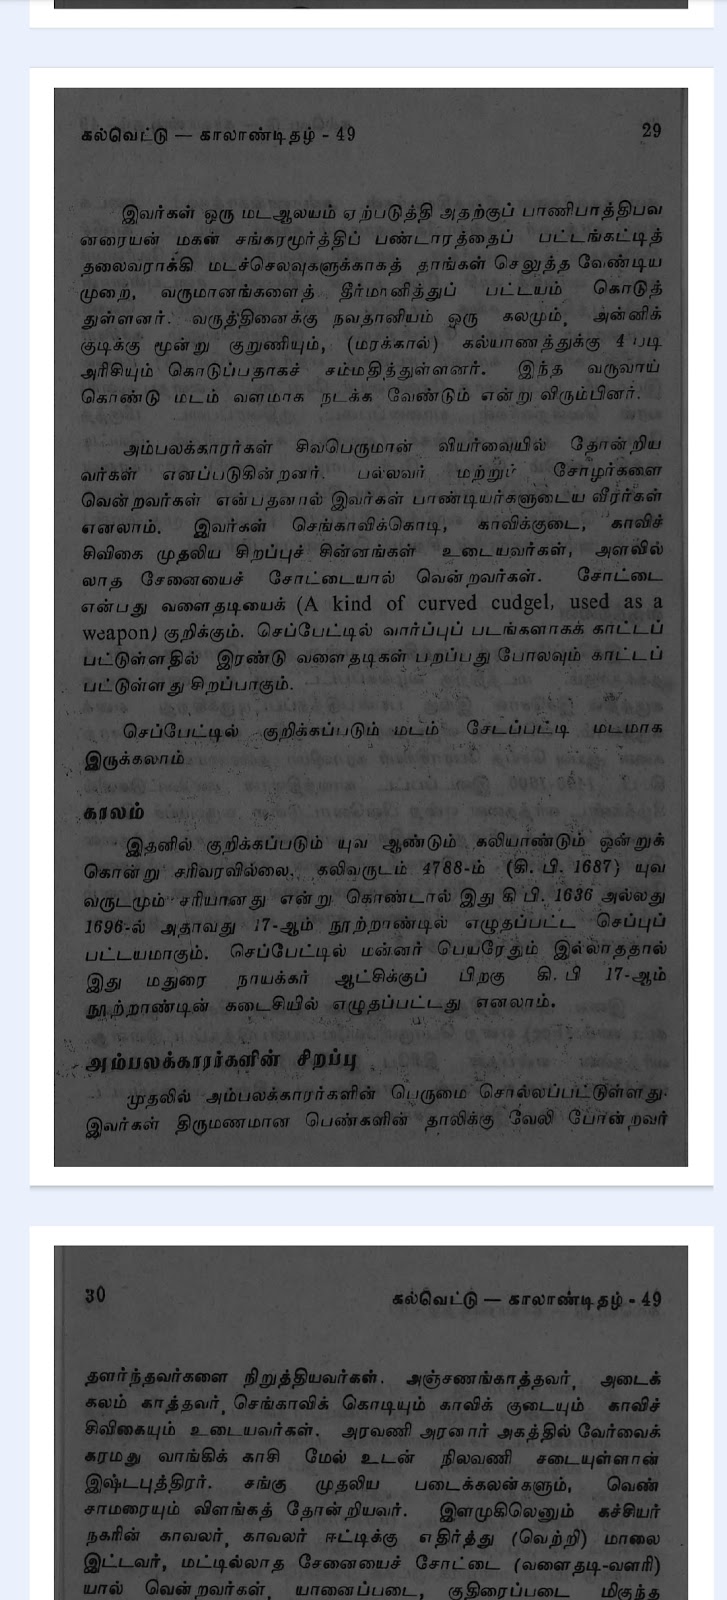 கல்வெட்டு — காலாண்டிதழ் - 49 29
இவர்கள் ஒரு மடஆலயம் ஏற்படுத்தி அதற்குப் பாணிபாத்திபவ
னரையன் மகன் சங்கரமூர்த்திப் பண்டாரத்தைப் பட்டங்கட்டித்
தலைவராக்கி மடச்செலவுகளுக்காகத் தாங்கள் செலுத்த வேண்டிய
முறை, வருமானங்களைத் தீர்மானித்துப் பட்டயம் கொடுத்
துள்ளனர். வருத்தினைக்கு நவதானியம் ஒரு கலமும், அன்னிக்
குடிக்கு மூன்று குறுணியும், (மரக்கால்) கல்யாணத்துக்கு 4 படி
அரிசியும் கொடுப்பதாகச் சம்மதித்துள்ளனர். இந்த வருவாய்
கொண்டு மடம் வளமாக நடக்க வேண்டும் என்று விரும்பினர்.
அம்பலக்காரர்கள் சிவபெருமான் வியர்வையில் தோன்றிய
வர்கள் எனப்படுகின்றனர். பல்லவர் மற்றும் சோழர்களை
வென்றவர்கள் என்பதனால் இவர்கள் பாண்டியர்களுடைய வீரர்கள்
எனலாம். இவர்கள் செங்காவிக்கொடி, காவிக்குடை, காவிச்
சிவிகை முதலிய சிறப்புச் சின்னங்கள் உடையவர்கள், அளவில்
லாத சேனையைச் சோட்டையால் வென்றவர்கள். சோட்டை
என்பது வளைதடியைக் (A kind of curved cudgel, used as a
weapon) குறிக்கும். செப்பேட்டில் வார்ப்புப் படங்களாகக் காட்டப்
பட்டுள்ளதில் இரண்டு வளைதடிகள் பறப்பது போலவும் காட்டப்
பட்டுள்ளது சிறப்பாகும்.
செப்பேட்டில் குறிக்கப்படும் மடம் சேடப்பட்டி மடமாக
இருக்கலாம்
காலம்
இதனில் குறிக்கப்படும் யுவ ஆண்டும் கலியாண்டும் ஒன்றுக்
கொன்று சரிவரவில்லை. கலிவருடம் 4788-ம் (கி. பி. 1687) யுவ
வருடமும் சரியானது என்று கொண்டால் இது கி பி. 1636 அல்லது
1696-ல் அதாவது 17-ஆம் நூற்றாண்டில் எழுதப்பட்ட செப்புப்
பட்டயமாகும். செப்பேட்டில் மன்னர் பெயரேதும் இல்லாததால்
இது மதுரை நாயக்கர் ஆட்சிக்குப் பிறகு கி. பி 17-ஆம்
நூற்றாண்டின் கடைசியில் எழுதப்பட்டது எனலாம்.
அம்பலக்காரர்களின் சிறப்பு
முதலில் அம்பலக்காரர்களின் பெருமை சொல்லப்பட்டுள்ளது.
இவர்கள் திருமணமான பெண்களின் தாலிக்கு வேலி போன்றவர்
30 கல்வெட்டு — காலாண்டிதழ் - 49
தளர்ந்தவர்களை நிறுத்தியவர்கள். அஞ்சணங்காத்தவர், அடைக்
கலம் காத்தவர், செங்காவிக் கொடியும் காவிக் குடையும் காவிச்
சிவிகையும் உடையவர்கள். அரவணி அரனார் அகத்தில் வேர்வைக்
கரமது வாங்கிக் காசி மேல் உடன் நிலவணி சடையுள்ளான்
இஷ்டபுத்திரர். சங்கு முதலிய படைக்கலன்களும், வெண்
சாமரையும் விளங்கத் தோன்றியவர். இளமுகிலெனும் கச்சியர்
நகரின் காவலர், காவலர் ஈட்டிக்கு எதிர்த்து (வெற்றி) மாலை
இட்டவர், மட்டில்லாத சேனையைச் சோட்டை (வளைதடி-வளரி)
யால் வென்றவர்கள், யானைப்படை, குதிரைப்படை மிகுந்த